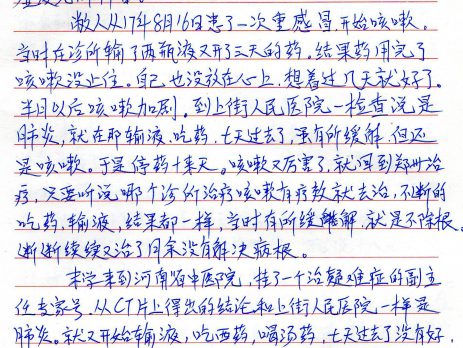 敝人从17年8月16日患了一次重感冒,开始咳嗽。
当时在诊所输了两瓶液又开了三天的药。结果药用完了
咳嗽没止住。自己也没放在心上,想着过几天就好了。
半月以后咳嗽加剧。到上街人民医院一检查说是
肺炎,就在那输液、吃药,七天过去了,虽有所缓解,但还
是咳嗽。于是停药十来天。咳嗽又厉害了,就回到郑州治
疗,只要听说哪个诊所治疗咳嗽有疗效就去治,不断的
吃药、输液,结果都一样,当时有所缓解,就是不除根。
断断续续又治了月余没有解决病根。
来到河南省中医院,挂了一个治疑难症的副主
任专家号,从CT片上得出的结论和上街人民医院一样是
肺炎。就又开始输液,吃西药,喝汤药,七天过去了没有好,